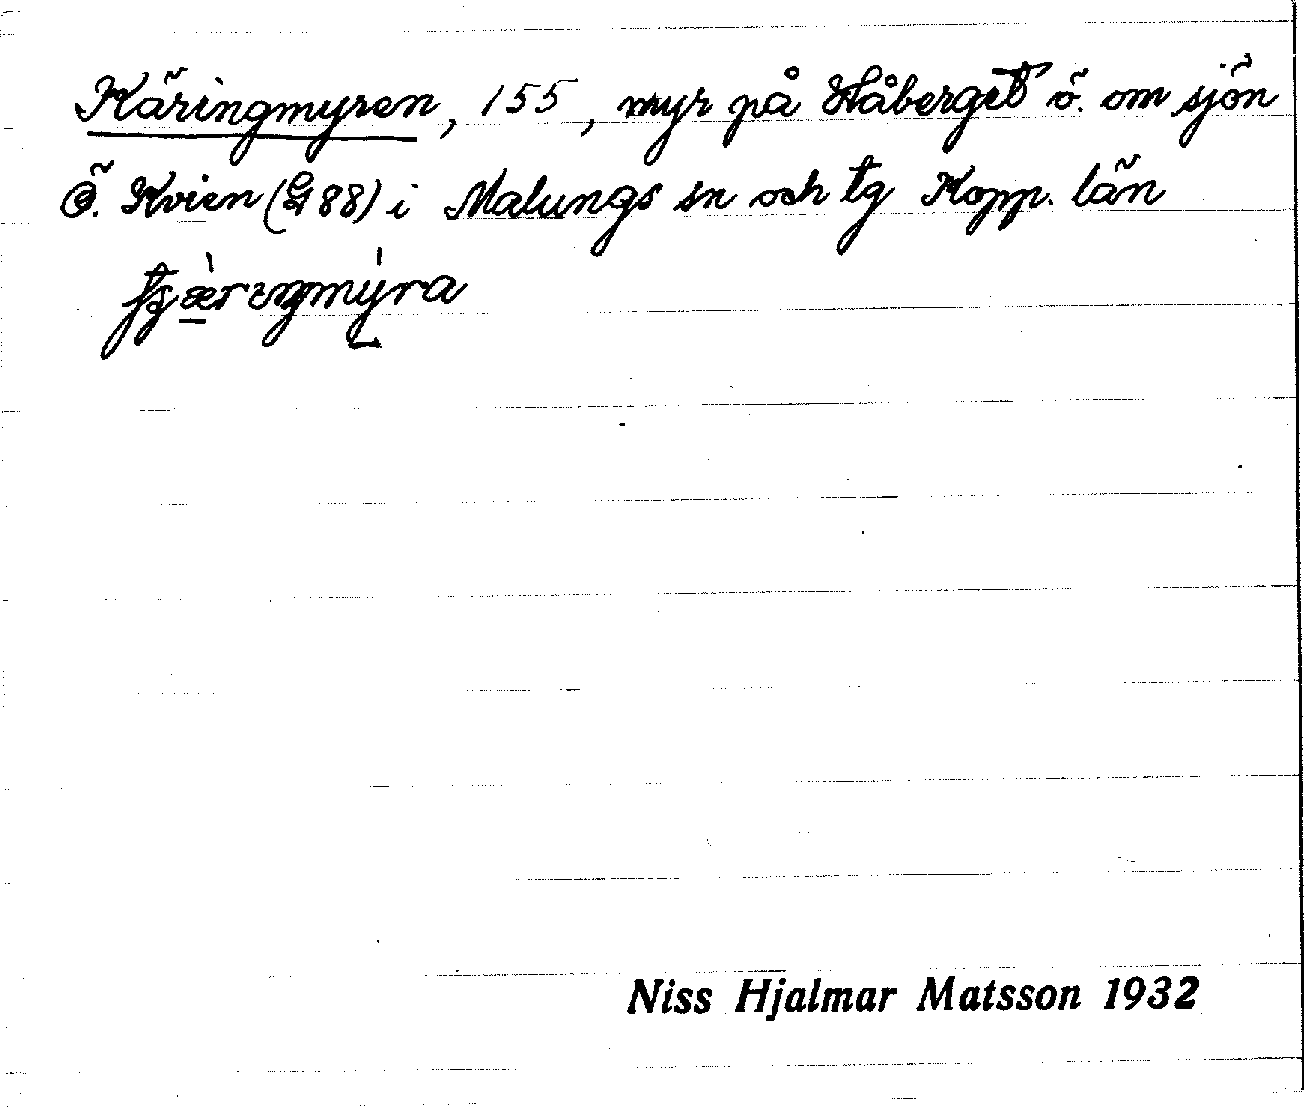 Käringmyren, 155, myr på Håberget ö. om sjön
Ö. Kvien (G 88) i Malungs sn och tg Kopp. län
Niss Hjalmar Matsson 1932